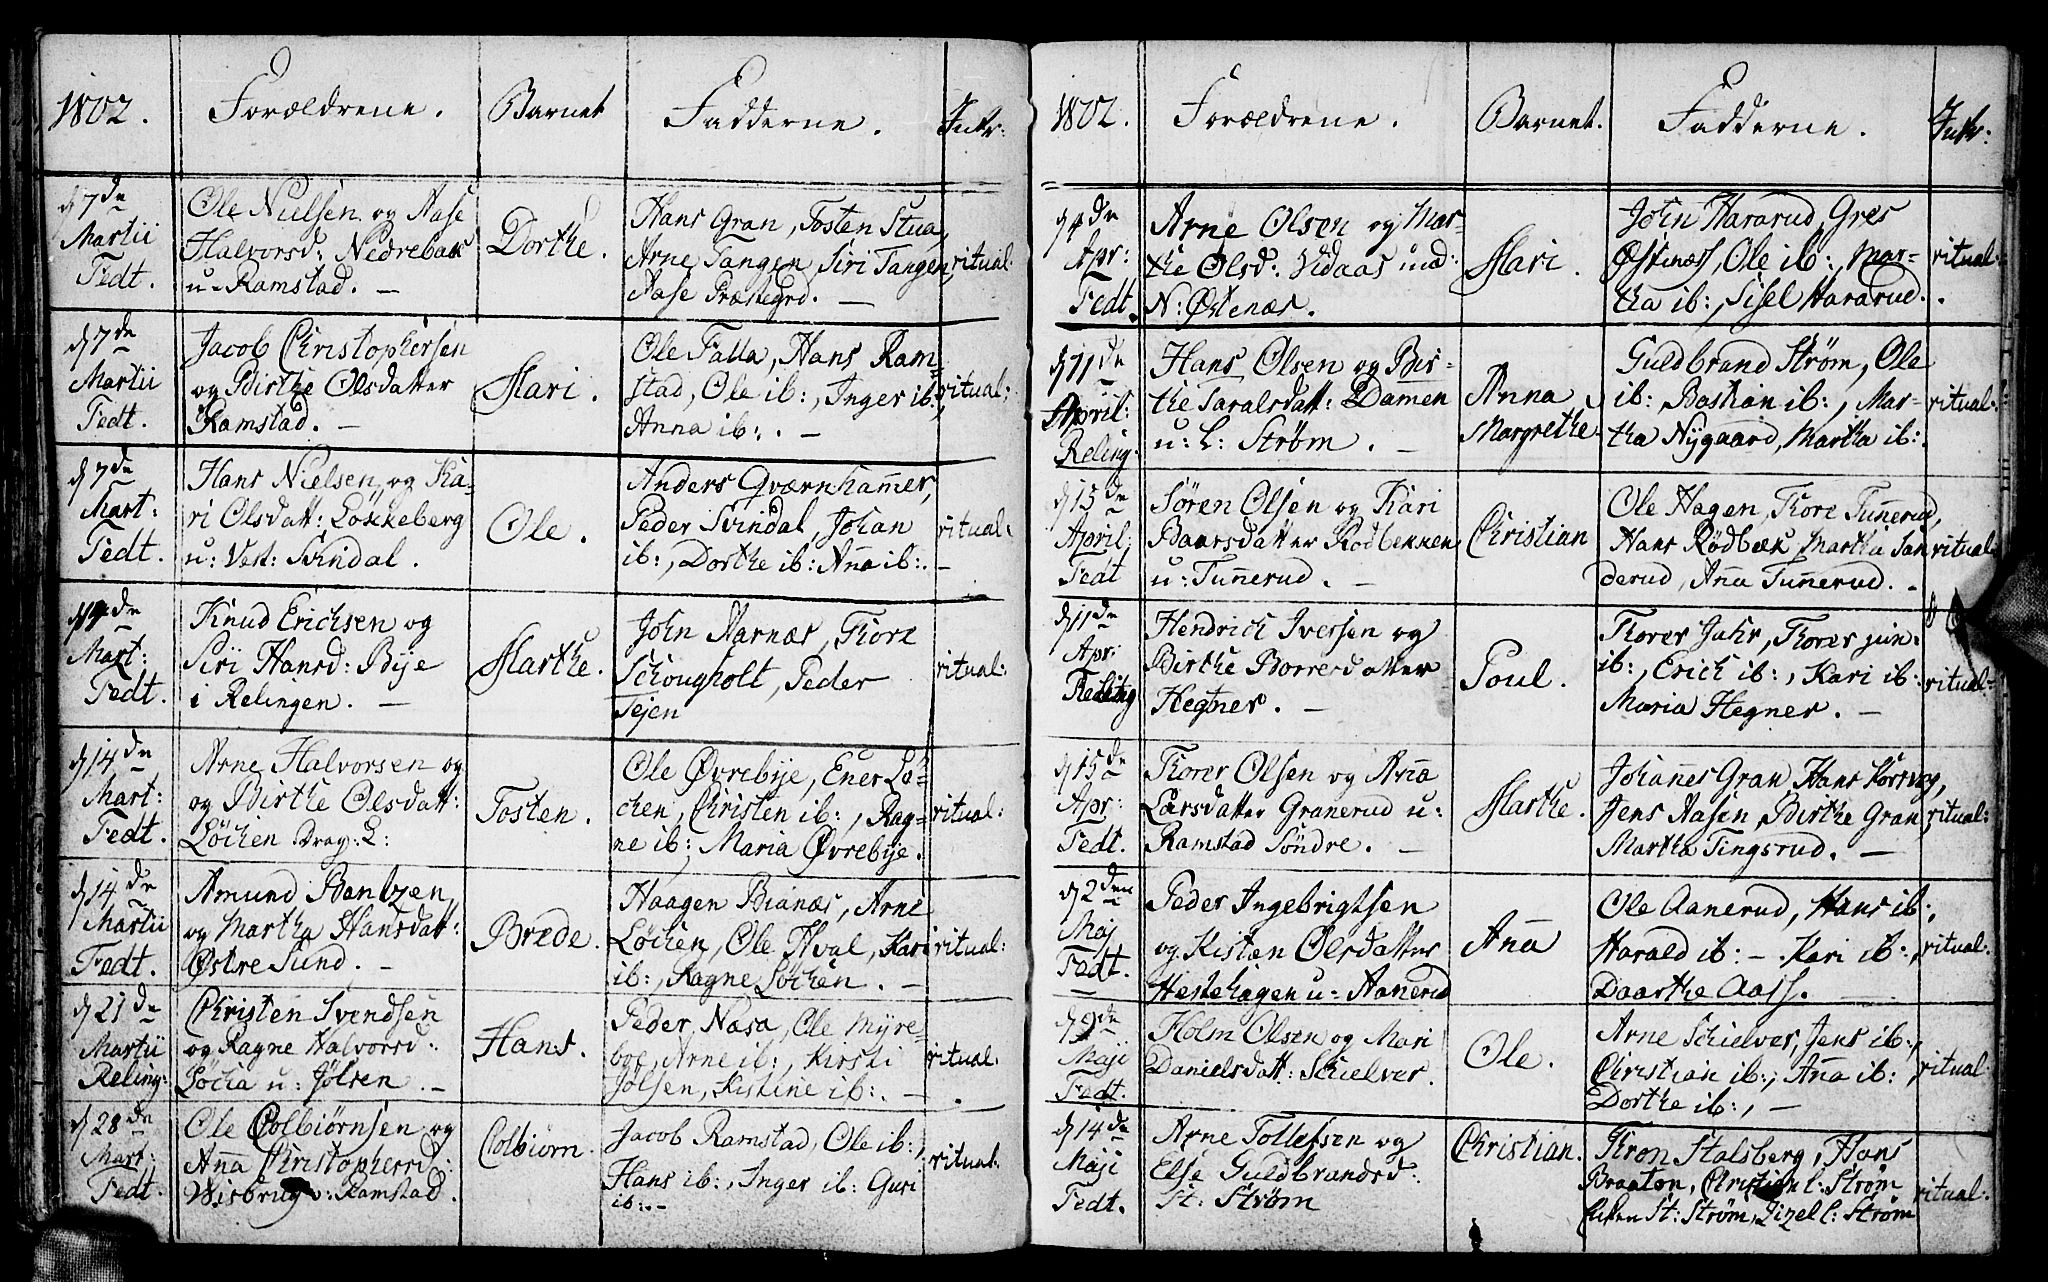 1802. Forældrene. Barnet Fadderne. Intr:
d 7de Martii Fedt.
Ole Nielsen og Aase
Halvorsd: Nedrebak
u- Ramstad. —
Dorthe.
Hans Gran, Tosten Stua,
Arne Tangen, Siri Tangen,
Aase Præstegrd. —
ritual:
d 7de Martii Fedt.
Jacob Christophersen
og Birthe Olsdatter
Ramstad. —
Mari.
Ole Falla, Hans Ram-
stad, Ole ib:, Inger ib:,
Anna ib:. —
ritual:
d 7de Mart: Fedt.
Hans Nielsen og Ka-
ri Olsdatt: Løkkeberg
u: Vest: Svindal.
Ole.
Anders Qværnham̄er,
Peder Svindal, Johan
ib:, Dorthe ib: An̄a ib:. —
ritual:
Mart: Fedt.
Knud Erichsen og
Siri Hansd: Bÿe
i Relingen. —
Marthe.
John Narnæs, Thore
Schougholt, Peder
Tejen
ritual:
d 14de Mart: Fedt.
Arne Halvorsen og
og Birthe Olsdatt:
Løchen Drag: L:
Tosten.
Ole Øvrebÿe, Ener Lø-
chen, Christen ib:, Rag-
ne ib; Maria Øvrebÿe.
ritual:
d 14de Martii Fedt.
Amund Bentzen,
og Martha Hansdatt:
Østre Sund. —
Brede.
Haagen Bianæs, Arne
Løchen, Ole Hval, Kari
ib:, Ragne Løchen. —
ritual:
d 21de Martii Reling:
Christen Svendsen
og Ragne Halvorsd:
Løcha u: Jølsen. —
Hans.
Peder Nasa, Ole Myre-
boe, Arne ib:, Kirsti
Jølsen, Kistine ib:. —
ritual:
d 28de Mart: Fedt.
Ole Colbiørnsen og
An̄a Christophersd:
Wisbrug u: Ramstad.
Colbiørn.
Jacob Ramstad, Ole ib:,
Hans ib:, Inger ib: Guri
ib:. —
ritual:
1802. Forældrene. Barnet. Fadderne. Intr:
d 4de Apr: Fedt.
Arne Olsen og Mar-
the Olsd: Vidaas ind:
N: Østenæs.
Mari.
John Hararud, Gres
Østenæs, Ole ib:, Mar-
tha ib:, Sisel Hararud.
ritual:
d 11de April: Reling:
Hans Olsen og Bir-
the Taralsdatt: Damen
u: L: Strøm. —
Anna
Margrethe
Guldbrand Strøm, Ole
ib:, Bastian ib:, Mar-
tha Nygaard, Martha ib:.
ritual:
d 15de April: Fedt
Søren Olsen og Kari
Baarsdatter Rødbekken
u: Tun̄erud. —
Christian
Ole Hagen, Thore Tun̄erud,
Hans Rødbæk, Martha San
derud, An̄a Tun̄erud. —
ritual:
d 11de Apr: Reling
Hendrich Iversen og
Birthe Borresdatter
Hegner. —
Poul.
Thorer Jahr, Thorer jun:
ib:, Erich ib:, Kari ib:
Maria Hegner. —
ritual:
d 15de Apr: Fedt.
Thorer Olsen og An̄a
Larsdatter Granerud u:
Ramstad Søndre. —
Marthe.
Johan̄es Gran, Hans Kortveg,
Jens Aasen, Birthe Gran,
Martha Tingsrud. —
ritual:
d 2den Maj Fedt.
Peder Ingebrigtsen
og Kisten Olsdatter
Hestehagen u- Aanerud
An̄a
Ole Aanerud, Hans ib:,
Harald ib: —. Kari ib:,
Daarthe Aass. —
ritual:
d 9de Maji Fedt.
Holm Olsen og Mari
Danielsdatt: Schielver.
Ole.
Arne Schielver, Jens ib:,
Christian ib:, An̄a ib:,
Dorthe ib:, —
ritual:
d 14de Maji Fedt.
Arne Tollefsen og
Else Guldbrandsd:
St: Strøm
Christian.
Thron Stalsberg, Hans
Braaton, Christian l: Strøm
St: Strøm, Lizel l: Strøm
ritual: